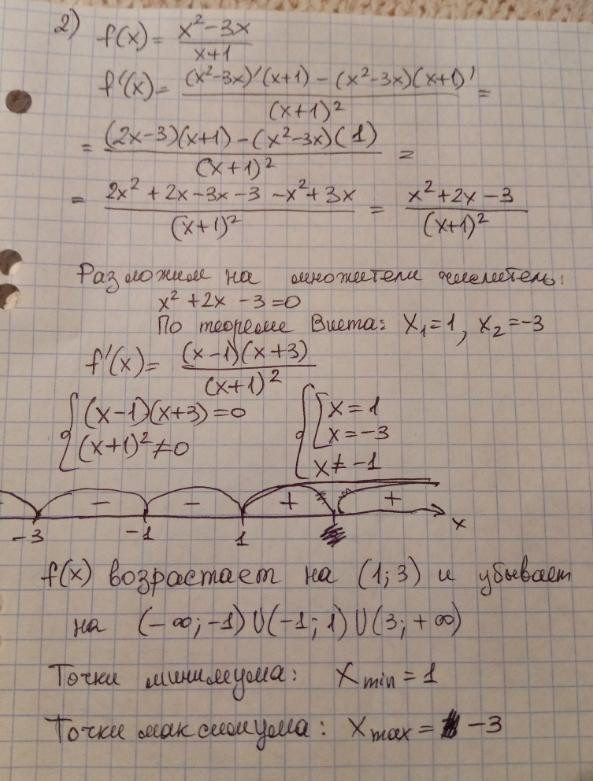 2) f(x) = (x² - 3x)/(x+1)
f'(x) = ((x²-3x)'(x+1) - (x²-3x)(x+1)')/(x+1)² =
= ((2x-3)(x+1) - (x²-3x)(1))/(x+1)² =
= (2x² + 2x - 3x - 3 - x² + 3x)/(x+1)² = (x² + 2x - 3)/(x+1)²
Разложим на множители числитель:
x² + 2x - 3 = 0
По теореме Виета: x₁ = 1, x₂ = -3
f'(x) = ((x-1)(x+3))/(x+1)²
{ (x-1)(x+3) = 0 { [ x = 1
(x+1)² ≠ 0 x = -3
x ≠ -1
- - + +
-3 -1 1 x
f(x) возрастает на (1; 3) и убывает
на (-∞; -1) U (-1; 1) U (3; +∞)
Точки минимума: x min = 1
Точки максимума: x max = -3